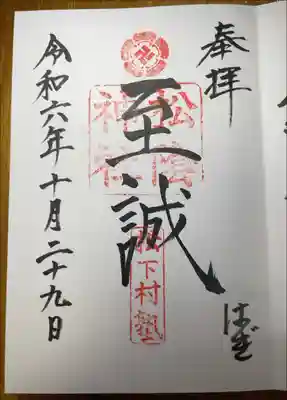 奉拝
はぎ
至誠
松陰神社
松下村塾
令和六年十月二十九日